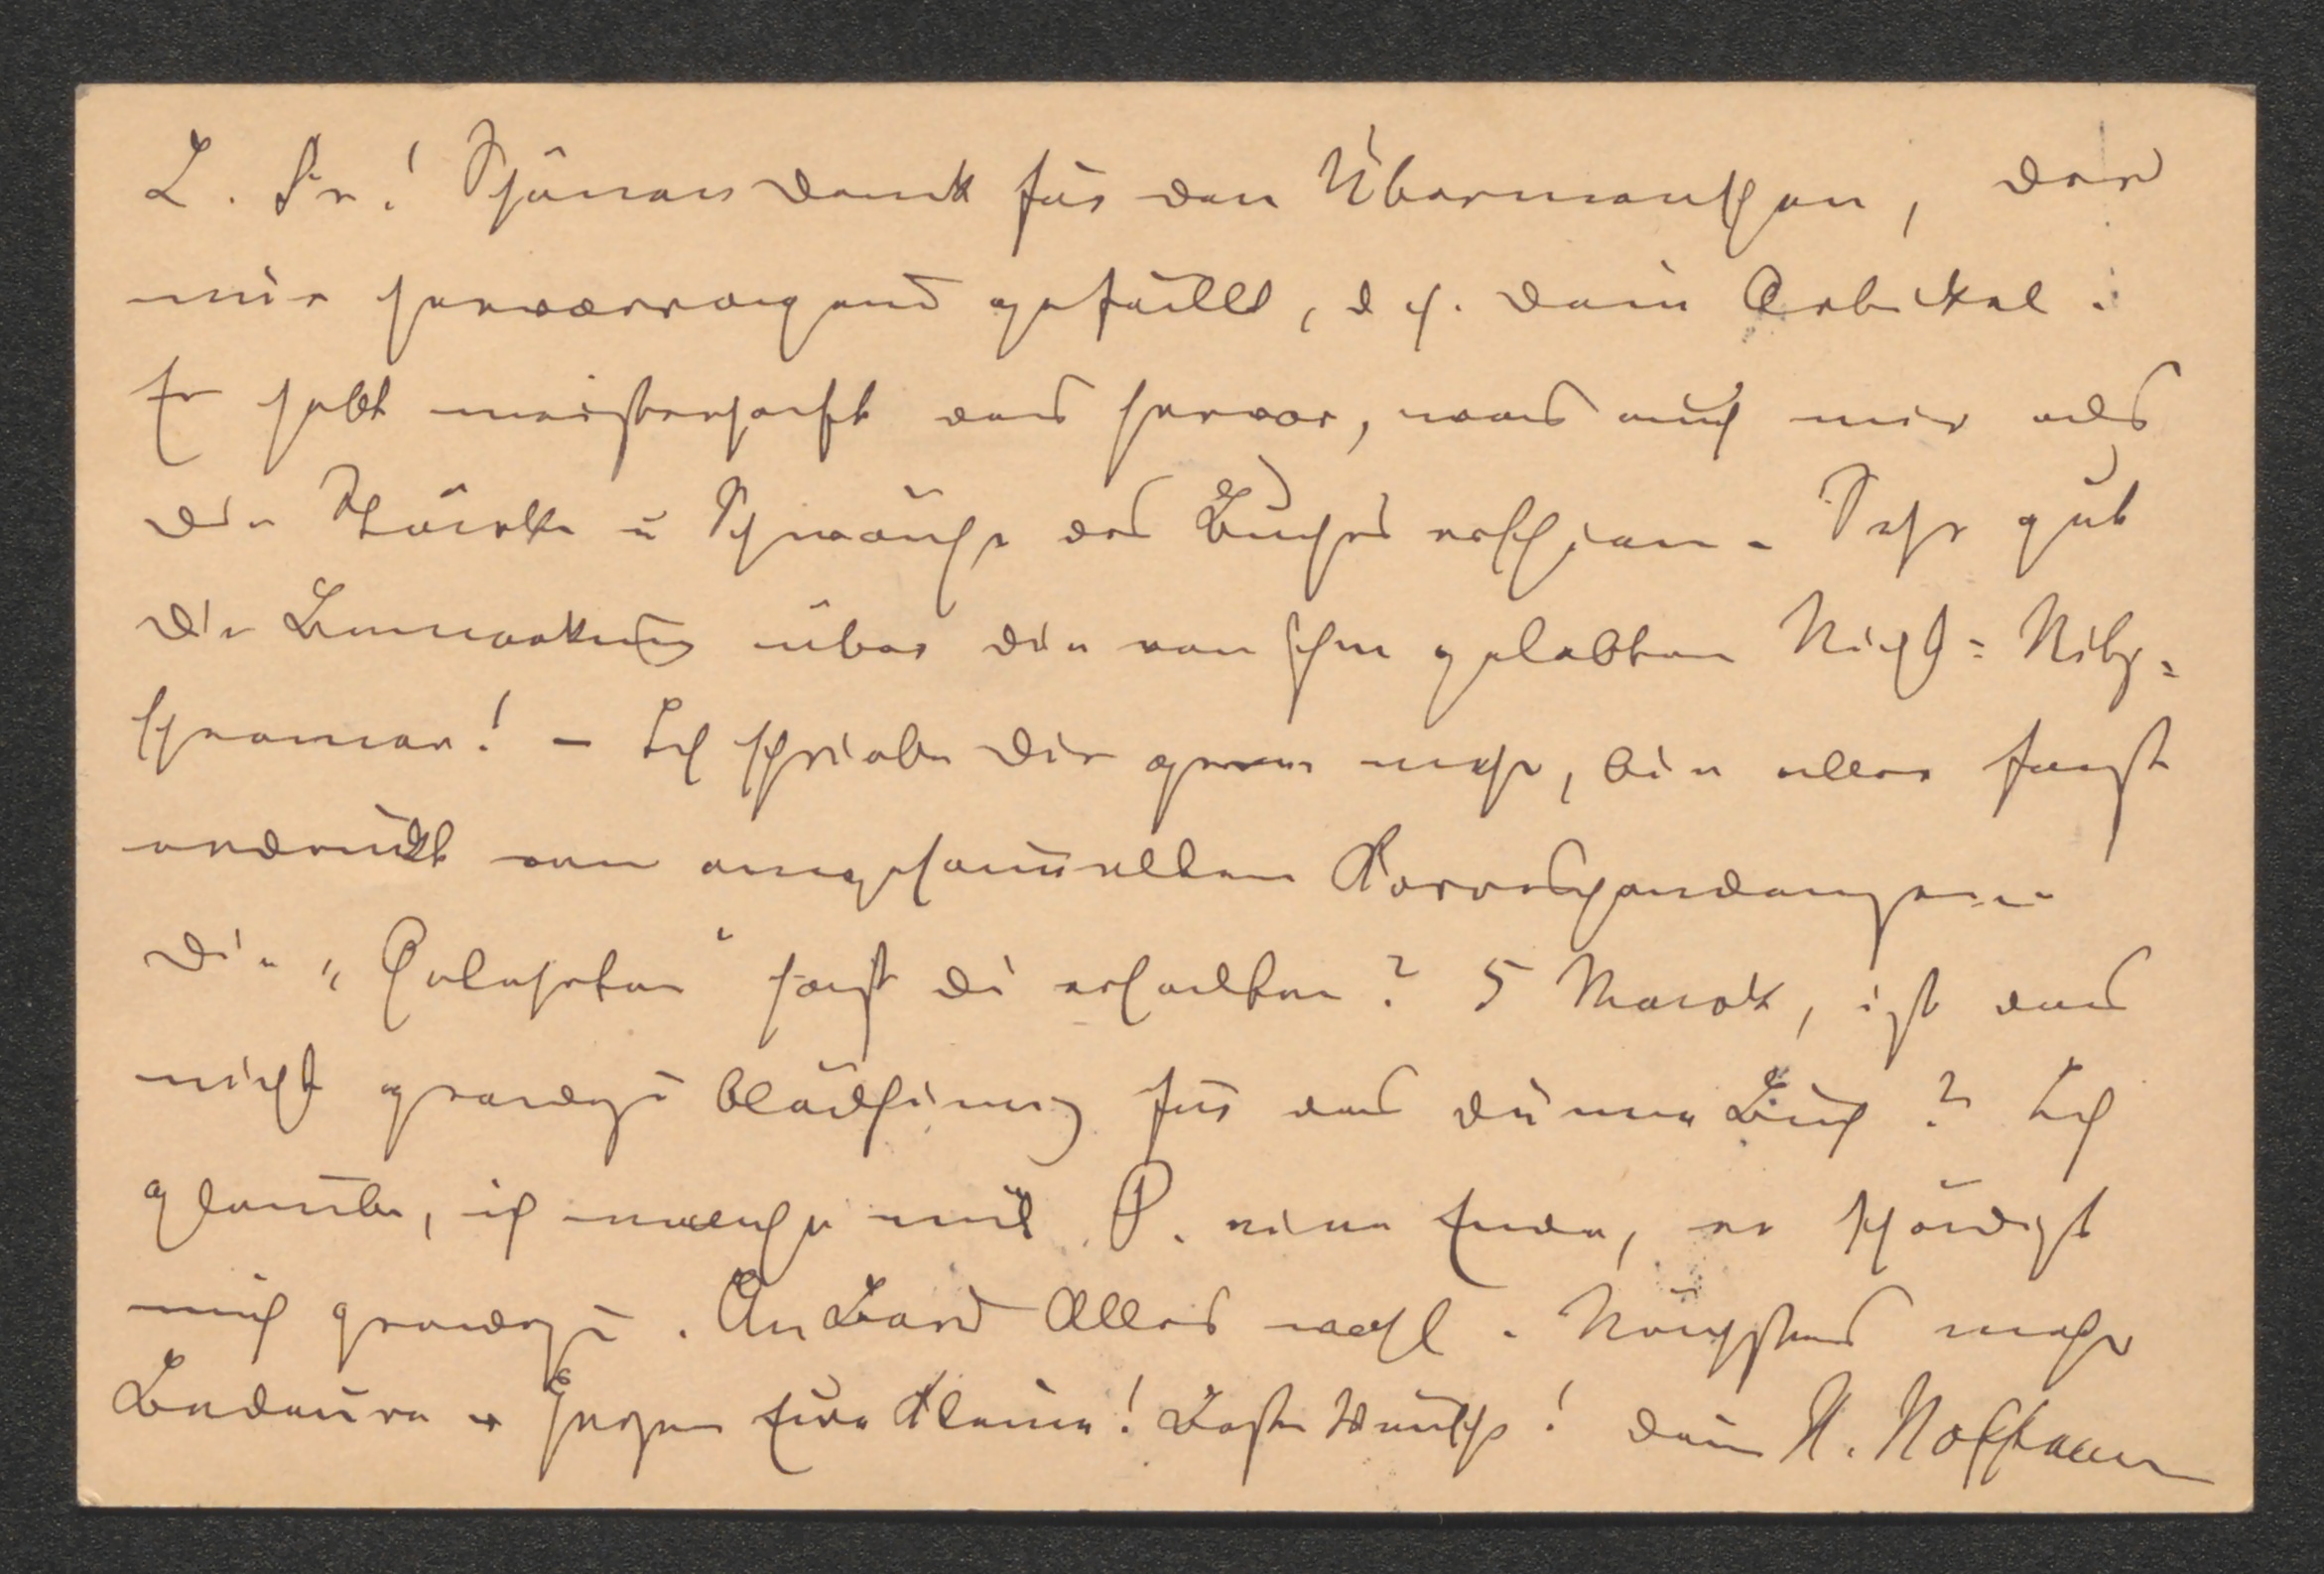 L. Fr.! Schönen Dank für den Übermenschen, der
mir hervorragend gefällt, d. h. dein Artikel.
Er hebt meisterhaft das hervor, was auch mir als
die Stärke u Schwäche des Buches erschien. Sehr gut
die Bemerkung über die von ihm gelebten Nicht-Nietz-
scheaner! – Ich schriebe Dir gerne mehr, bin aber fast
erdrückt von angesammelten Korrespondenzen.
Die „Gelehrten“ hast du erhalten? 5 Mark, ist das
nicht gradezu blödsinnig für das dünne Buch? Ich
glaube, ich mache mit P. ein Ende, er schädigt
mich gradezu. An Bord Alles wohl. Nächstens mehr
Bedaure v Herzen Eure Kleine! Beste Wünsche! Dein H. Hoffmann